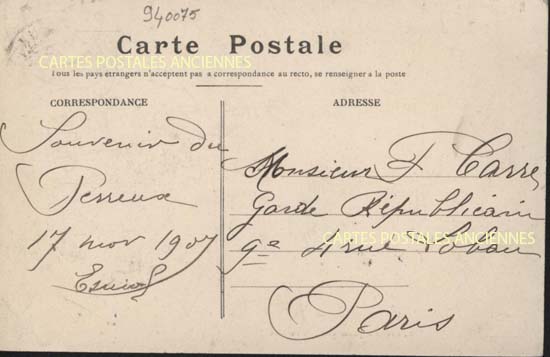 940075
Carte Postale
CARTES POSTALES ANCIENNES
Tous les pays étrangers n'acceptent pas la correspondance au recto, se renseigner à la poste
CORRESPONDANCE
Souvenir du
Perreux
17 nov 1907
ADRESSE
Monsieur F Carre
Garde Républicain
CARTES POSTALES ANCIENNES
4 rue Lobau
Paris